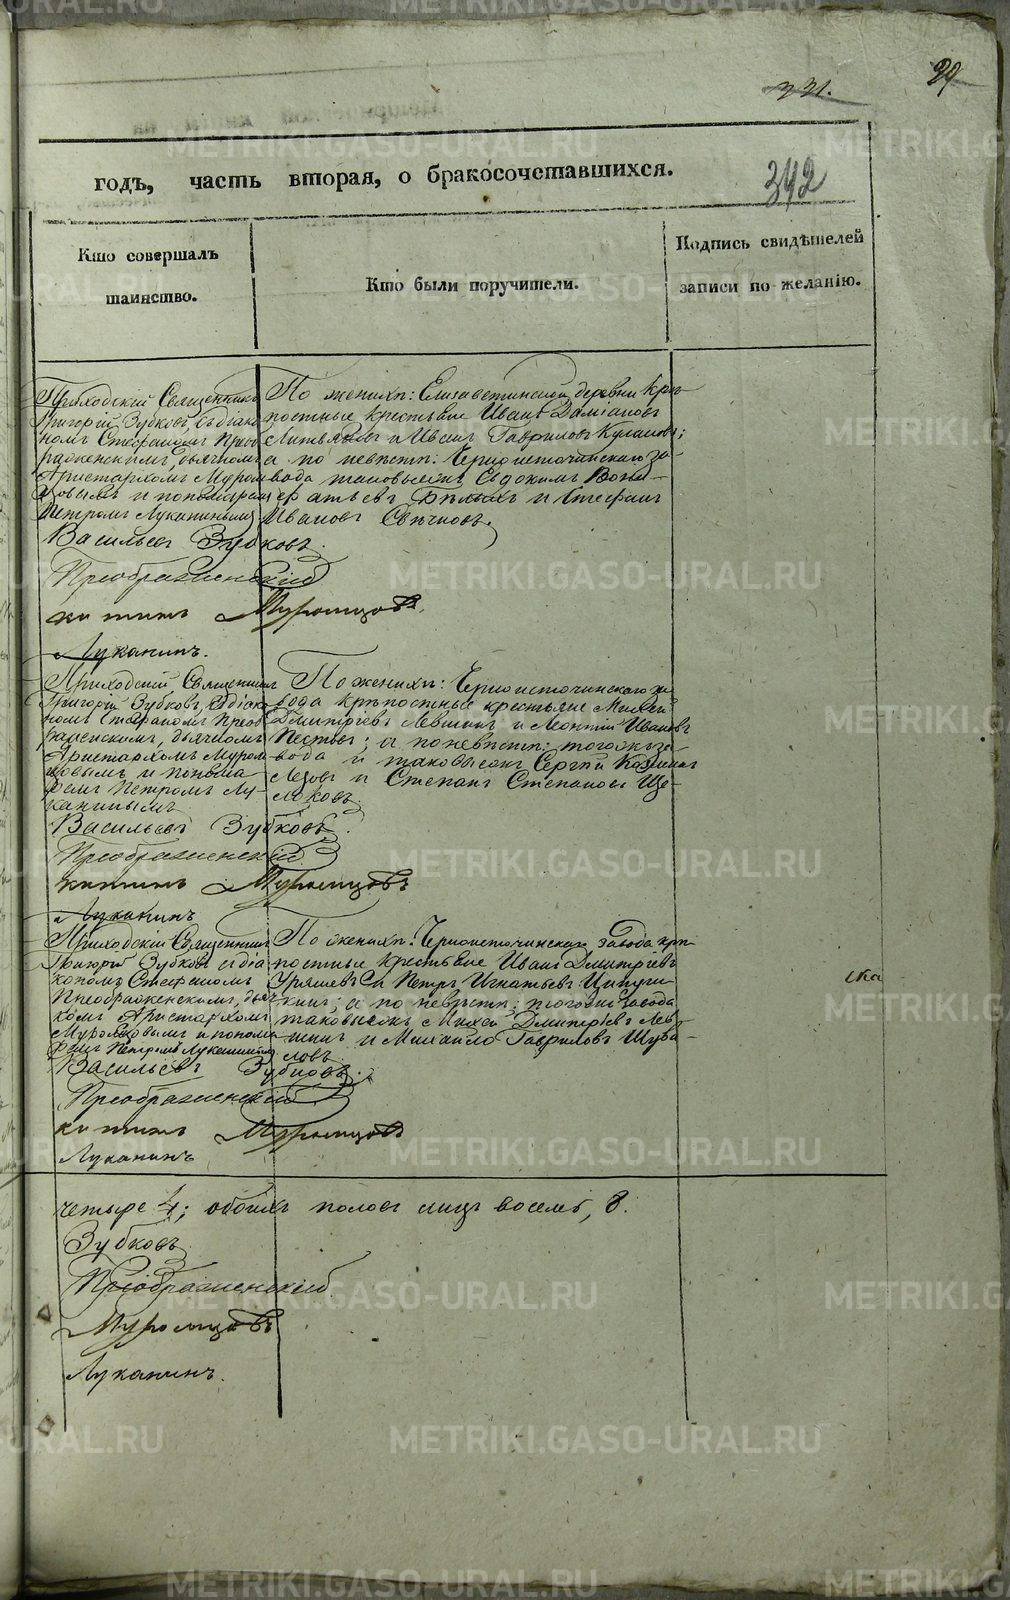 331.
99
годъ, часть вторая, о бракосочетавшихся.
342
Кто совершалъ
таинство.
Кто были поручители.
Подпись свидѣтелей
записи по желанію.
Приходскій Священникъ
Григорій Зубковъ, съ діако
номъ Стефаномъ Преоб
раженскимъ, дьячкомъ
Аристархомъ Муром
цовымъ и пономаремъ
Петромъ Луканинымъ
Васильевъ Зубковъ.
Преображенскій
Муромцовъ
Луканинъ.
По женихѣ: Елизаветинской деревни крѣ
постные крестьяне Иванъ Даміановъ
и Иванъ Гавриловъ
а по невѣстѣ: Черноисточинскаго за-
вода таковыежъ Евдокимъ
Бѣлыхъ и Стефанъ
Ивановъ Свѣчновъ.
Приходскій Священникъ
Григорій Зубковъ, съ діако
номъ Стефаномъ Преоб
раженскимъ, дьячкомъ
Аристархомъ Муром
цовымъ и понома
ремъ Петромъ Лу
канинымъ
Васильевъ Зубковъ.
Преображенскій
Муромцовъ
Луканинъ
По женихѣ: Черноисточинскаго за
вода крѣпостные крестьяне Михей
Дмитріевъ Левшинъ и Леонтій Ивановъ
Пестовъ; а по невѣстѣ: тогожъ за-
вода и таковыежъ Сергій
и Степанъ Степановъ Ще-
локовъ.
Приходскій Священникъ
Григорій Зубковъ съ діа
кономъ Стефаномъ
Преображенскимъ, дьяч
комъ Аристархомъ
Муромцовымъ и понома
ремъ Петромъ Луканинымъ
Васильевъ Зубковъ.
Преображенскій
Муромцовъ
Луканинъ
По женихѣ: Черноисточинскаго завода крѣ
постные крестьяне Иванъ Дмитріевъ
и Петръ Игнатьевъ
а по невѣстѣ: тогожъ завода
таковыежъ Михей Дмитріевъ Лев
шинъ и Михайло Гавриловъ Шува-
ловъ.
четыре 4; обоихъ половъ лицъ восемь, 8.
Зубковъ
Преображенскій
Муромцовъ
Луканинъ.
METRIKI.GASO-URAL.RU